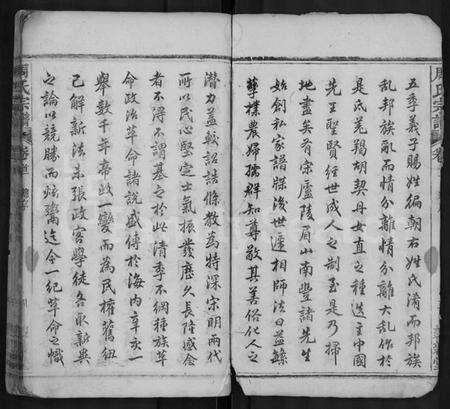 五季義子賜姓徧朝右姓氏淆而邦族
亂邦族亂而情分離情分離大亂作於
是氏羌羯胡契丹女真之種迭主中國
先王聖賢經世成人之制至是乃掃
地盡矣有宋廬陵眉山南豐諸先生
始創私家譜牒後世遞相師法日益繇
孽樸農婦孺群知尊敬其善俗化人之
潛力蓋較詔誥條教為特深宋明兩代
所以民心堅定士氣振發歷久長陸感念
者不得不謂基之於此清季不綱種族革
命政治革命諸說盛傳於海內辛亥一
舉數千年帝政一變而為民權舊紐
已解新法未張政客學徒各取新異
之論以競勝而炫鬻迄今一紀革命之幟
周氏宗譜
周氏宗譜
卷首